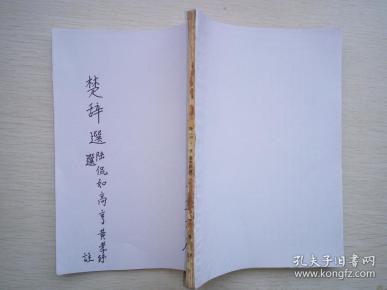 楚辞選
陆侃如高亨黄孝紓
選註
孔夫子旧书网